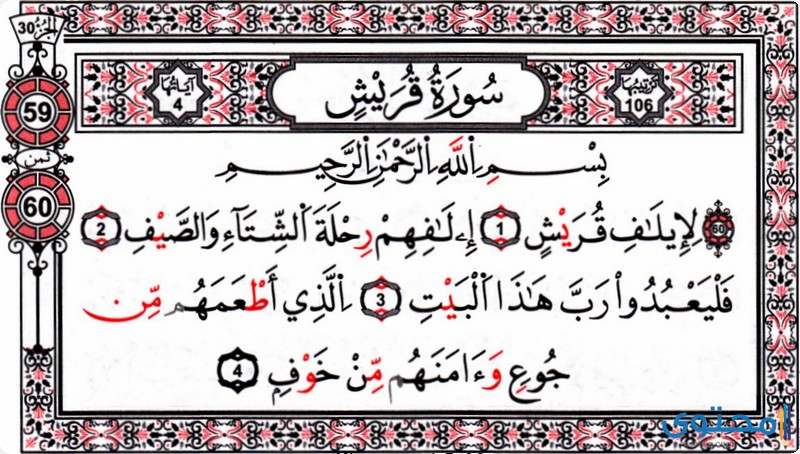 الجزء 30
59
ثمن
60
آياتها 4
سُورَةُ قُرَيْشٍ
ترتيبها 106
بِسْمِ اِ۬للَّهِ اِ۬لرَّحْمَٰنِ اِ۬لرَّحِيمِ
60 لِإِيلَٰفِ قُرَيْشٍ 1 إِۦلَٰفِهِمْ رِحْلَةَ اَ۬لشِّتَآءِ وَالصَّيْفِ 2
فَلْيَعْبُدُواْ رَبَّ هَٰذَا اَ۬لْبَيْتِ 3 اِ۬لَّذِي أَطْعَمَهُم مِّن
جُوعٍ وَءَامَنَهُم مِّنْ خَوْفٍ 4
محتوى